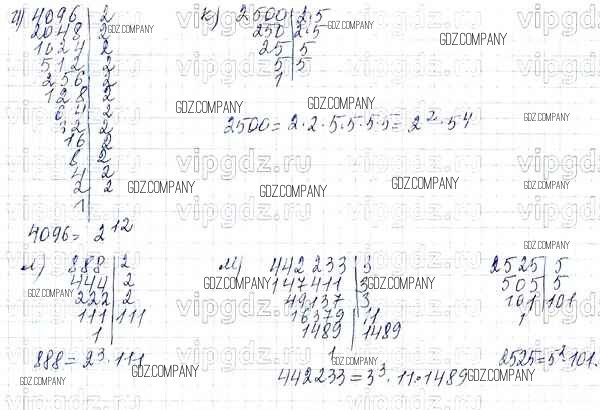 и) 4096 | 2
2048 | 2
1024 | 2
512 | 2
256 | 2
128 | 2
64 | 2
32 | 2
16 | 2
8 | 2
4 | 2
2 | 2
1
4096 = 2^12
к) 2500 | 2·5
250 | 2·5
25 | 5
5 | 5
1
2500 = 2·2·5·5·5·5 = 2^2·5^4
л) 888 | 2
444 | 2
222 | 2
111 | 111
1
888 = 2^3·111
м) 442233 | 3
147411 | 3
49137 | 3
16379 | 11
1489 | 1489
1
442233 = 3^3·11·1489
2525 | 5
505 | 5
101 | 101
1
2525 = 5^2·101.
GDZ.COMPANY
vipgdz.ru